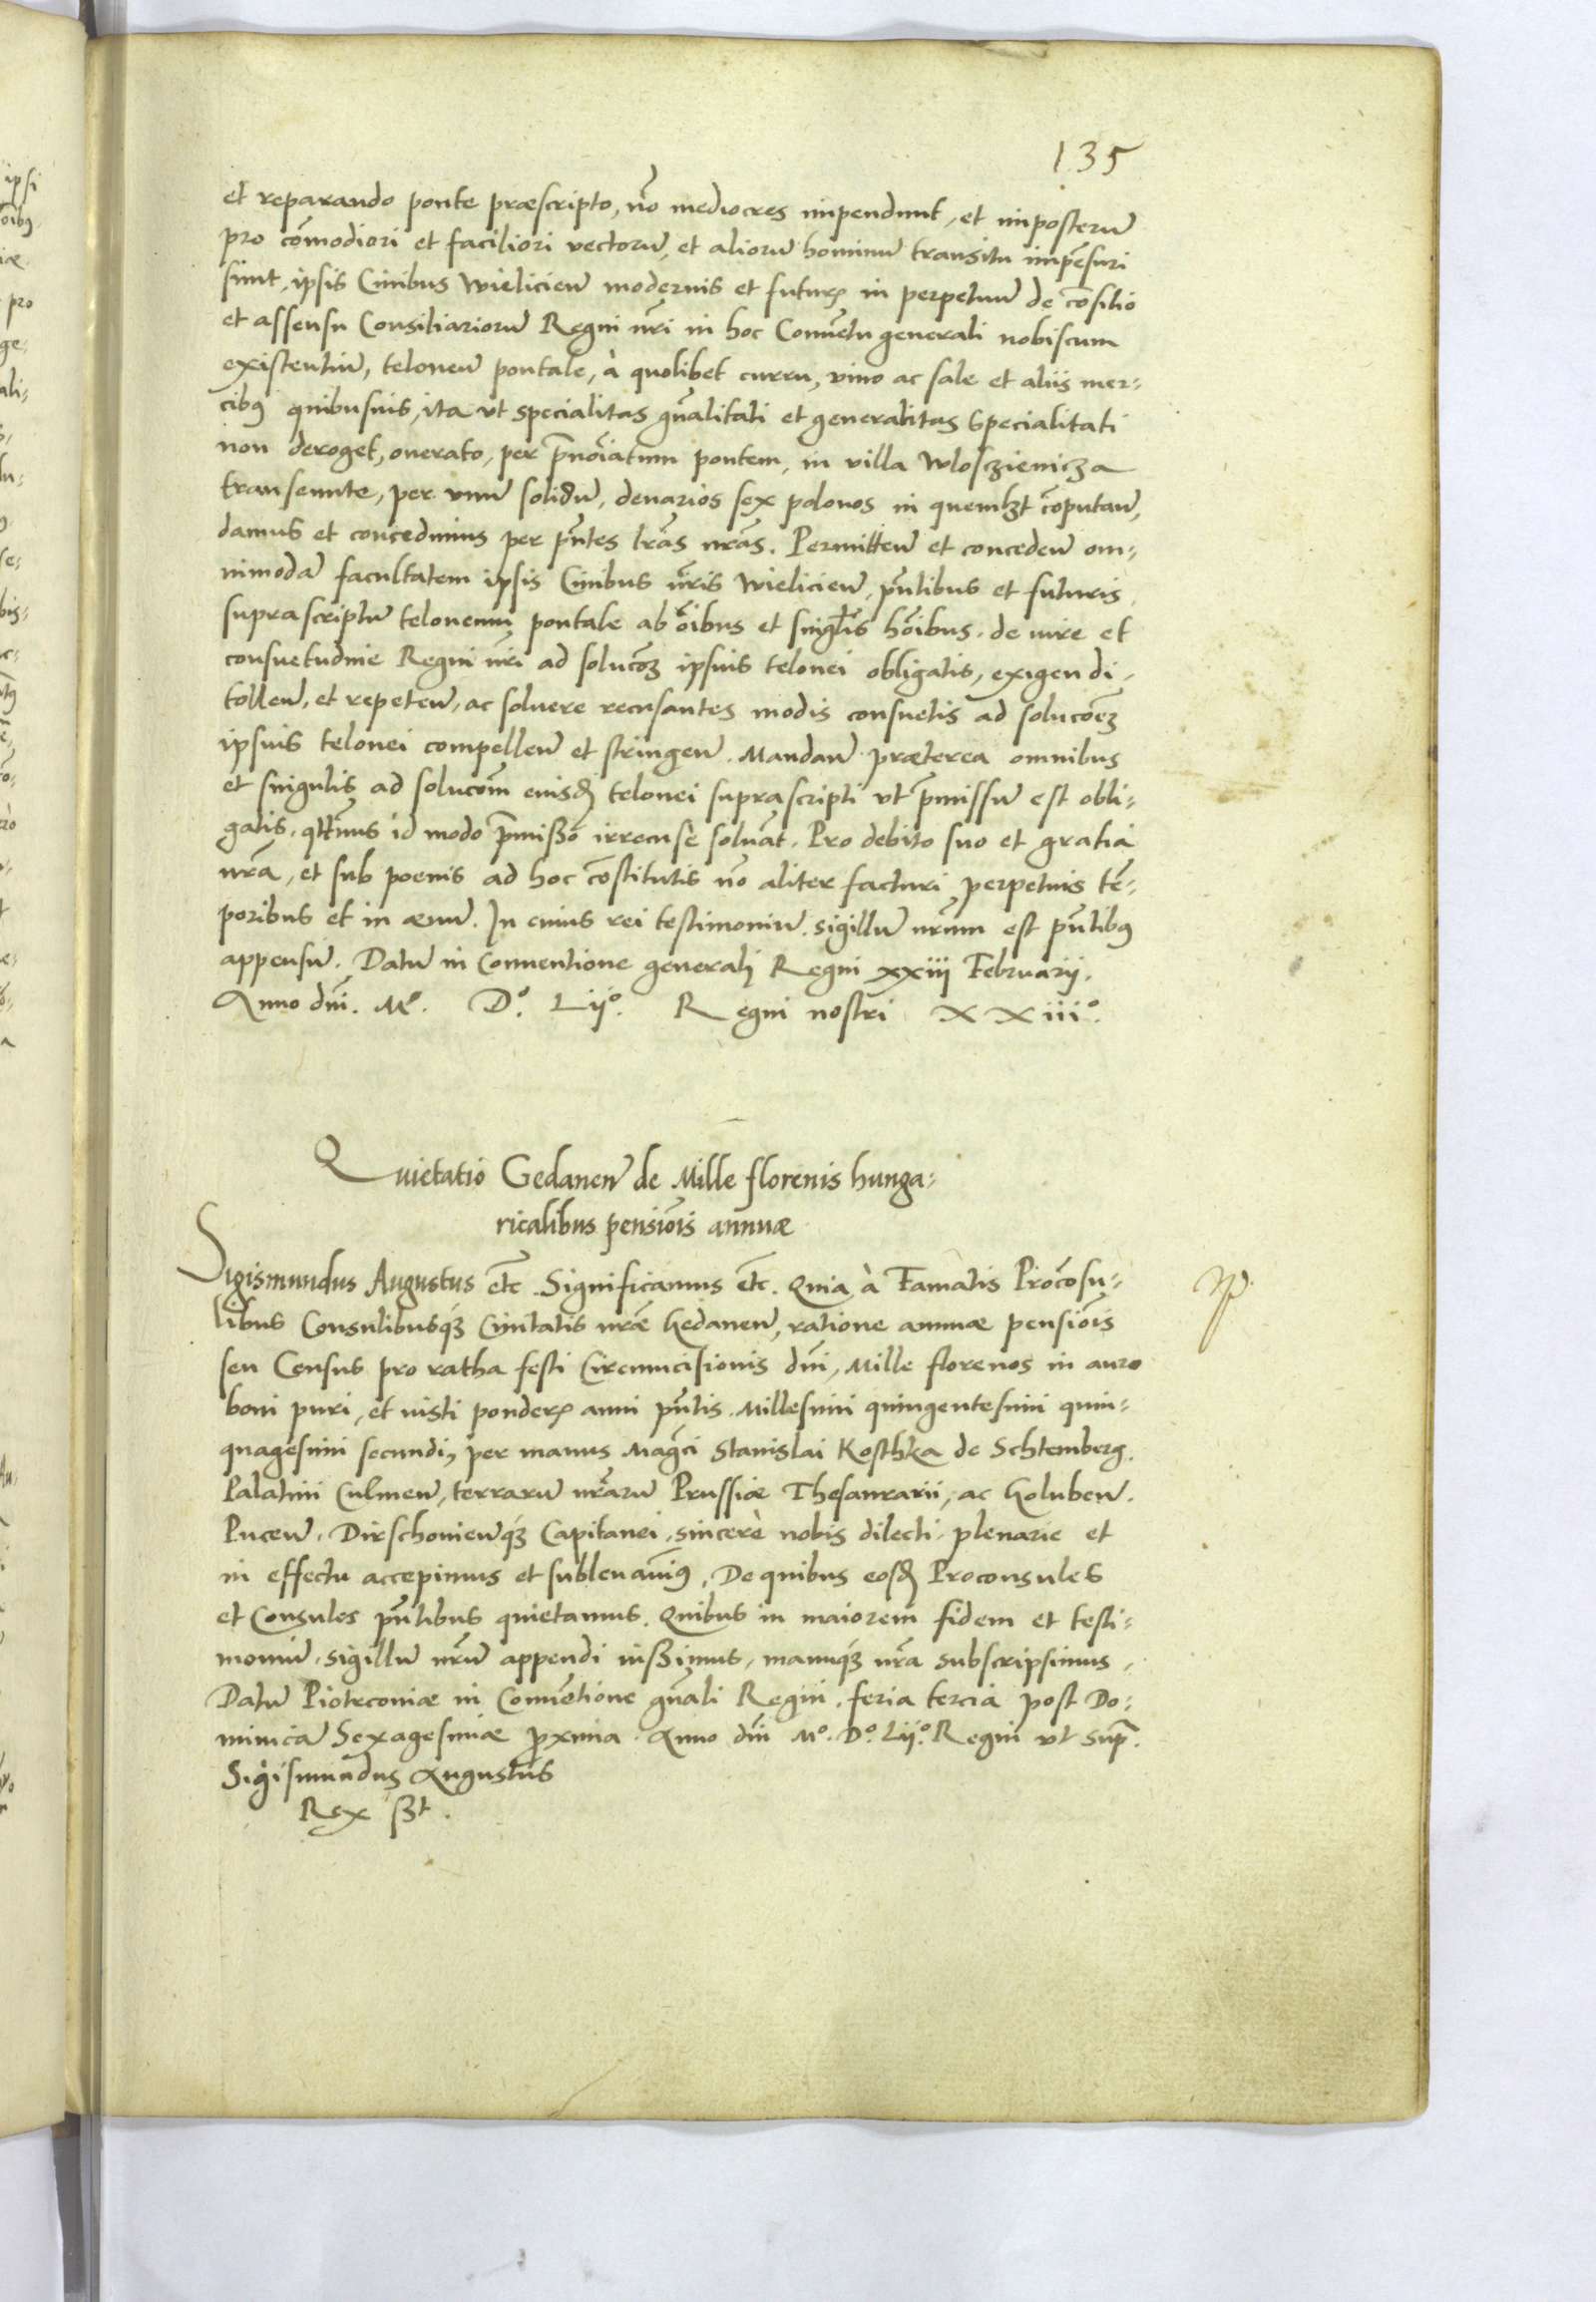 135
et reparando ponte præscripto, nō mediocres impendunt, et imposterū
pro cōmodiori et faciliori vectorū, et aliorū hominū transitu impēsuri
sunt, ipsis Ciuibus Wielicieñ modernis et futurꝭ in perpetuū de cōsilio
et assensu Consiliariorū Regni nr̄i in hoc Conuētu generali nobiscum
existentiū, teloneū pontale, à quolibet curru, vino ac sale et aliis mer-
cibꝰ quibusuis, ita vt specialitas gn̄alitati et generalitas specialitati
non deroget, onerato, per p̄noīatum pontem, in villa Wlosczienicza
transeunte, per vnū solidū, denarios sex polonos in quemlꝫt cōputañ,
damus et concedimus per pn̄tes lr̄as nr̄as. Permitteñ et concedeñ om-
nimodā facultatem ipsis Ciuibus nr̄is Wielicieñ, pn̄tibus et futuris
suprascriptū teloneum pontale ab oībus et singl̄is hoībus, de iure et
consuetudine Regni nr̄i ad solucōꝫ ipsius telonei obligatis, exigendi,
tolleñ, et repeteñ, ac soluere recusantes modis consuetis ad solucōeꝫ
ipsius telonei compelleñ et stringeñ. Mandañ præterea omnibus
et singulis ad solucōm eiusdē telonei suprascripti vt p̄missū est obli-
gatis, qt̄inus id modo p̄misso irrecusè soluāt. Pro debito suo et gratia
nr̄a, et sub poenis ad hoc cōstitutis nō aliter facturi, perpetuis tē-
poribus et in æuū. In cuius rei testimoniū. sigillū nr̄um est pn̄tibꝰ
appensū. Datū in Conuentione generali Regni xxiii Februarij.
Anno dn̄i. Mº. Dº. Lijº. Regni nostri XXiiiº.
Quietatio Gedaneñ de Mille florenis hunga-
ricalibus pensiōis annuæ
Sigismundus Augustus etc. Significamus etc. Quia à Famatis Procōsu-
libus Consulibusq́ꝫ Ciuitatis nr̄æ Gedaneñ, ratione annuæ pensiōis
seu Census pro ratha festi Circumcisionis dn̄i, Mille florenos in auro
boni puri, et iusti ponderꝭ anni pn̄tis. Millesimi quingentesimi quin-
quagesimi secundi, per manus Magc̄i Stanislai Kosthka de Schtemberg.
Palatini Culmeñ, terrarū nr̄arū Prussiæ Thesaurarii, ac Golubeñ.
Puceñ. Dirschouieñq́ꝫ Capitanei, sincerè nobis dilecti, plenarie et
in effectu accepimus et subleuauimꝰ, De quibus eosdē Proconsules
et Consules pn̄tibus quietamus. Quibus in maiorem fidem et testi-
moniū, sigillū nr̄ū appendi iussimus, manuq́ꝫ nr̄a subscripsimus.
Datū Piotrconiæ in Conuētione gn̄ali Regni, feria tercia post Do-
minicā Sexagesimæ p̄xima. Anno dn̄i Mº. Dº. Lijº. Regni vt supr̄.
Sigismundus Augustus
Rex sꝫt.